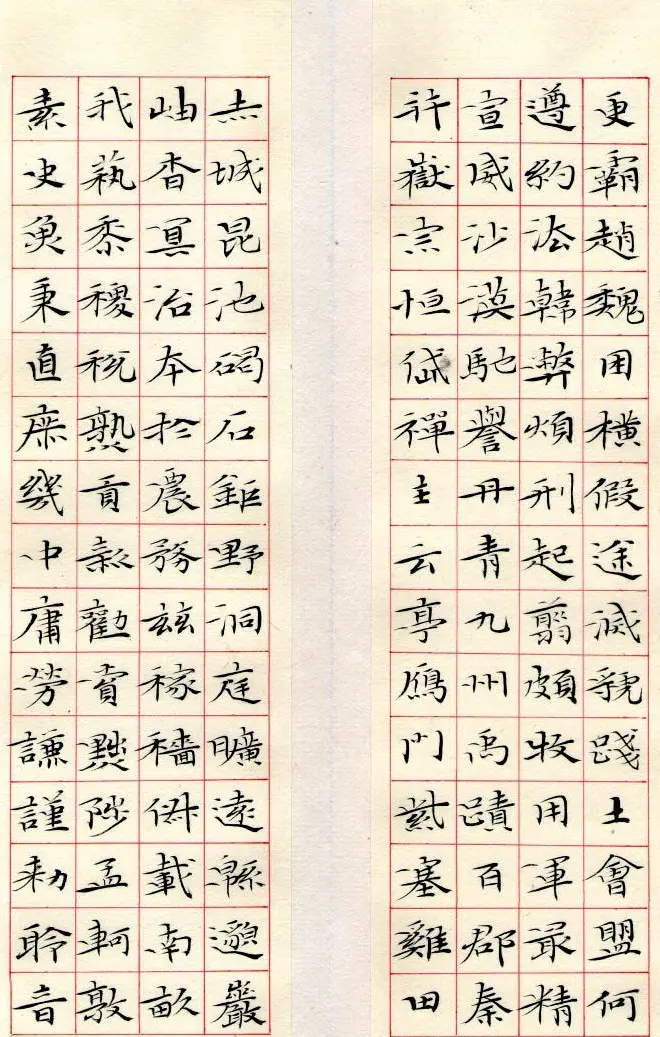 更霸趙魏困橫假途滅虢踐土會盟何
遵約法韓弊煩刑起翦頗牧用軍最精
宣威沙漠馳譽丹青九州禹蹟百郡秦
并嶽宗恒岱禪主云亭鴈門紫塞雞田
赤城昆池碣石鉅野洞庭曠遠緜邈巖
岫杳冥治本於農務茲稼穡俶載南畝
我藝黍稷稅熟貢新勸賞黜陟孟軻敦
素史魚秉直庶幾中庸勞謙謹勑聆音